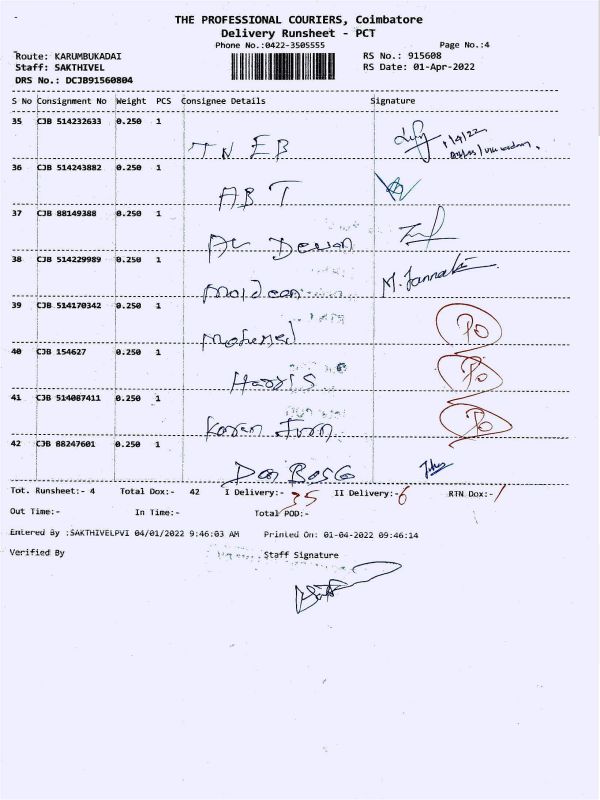 THE PROFESSIONAL COURIERS, Coimbatore
Delivery Runsheet - PCT
Phone No.:0422-3505555
Page No.:4
Route: KARUMBUKADAI
RS No.: 915608
Staff: SAKTHIVEL
RS Date: 01-Apr-2022
DRS No.: DCJB91560804
S No Consignment No Weight PCS Consignee Details Signature
35 CJB 514232633 0.250 1
TN EB
1/4/22
36 CJB 514243882 0.250 1
ABT
37 CJB 88149388 0.250 1
38 CJB 514229989 0.250 1
M.
39 CJB 514170342 0.250 1
Mohamed PO
40 CJB 154627 0.250 1
Harris PO
41 CJB 514087411 0.250 1
PO
42 CJB 88247601 0.250 1
Don Bosco
Tot. Runsheet:- 4 Total Dox:- 42 I Delivery:- 35 II Delivery:- 6 RTN Dox:- 1
Out Time:- In Time:- Total POD:-
Entered By :SAKTHIVELPVI 04/01/2022 9:46:03 AM Printed On: 01-04-2022 09:46:14
Verified By Staff Signature